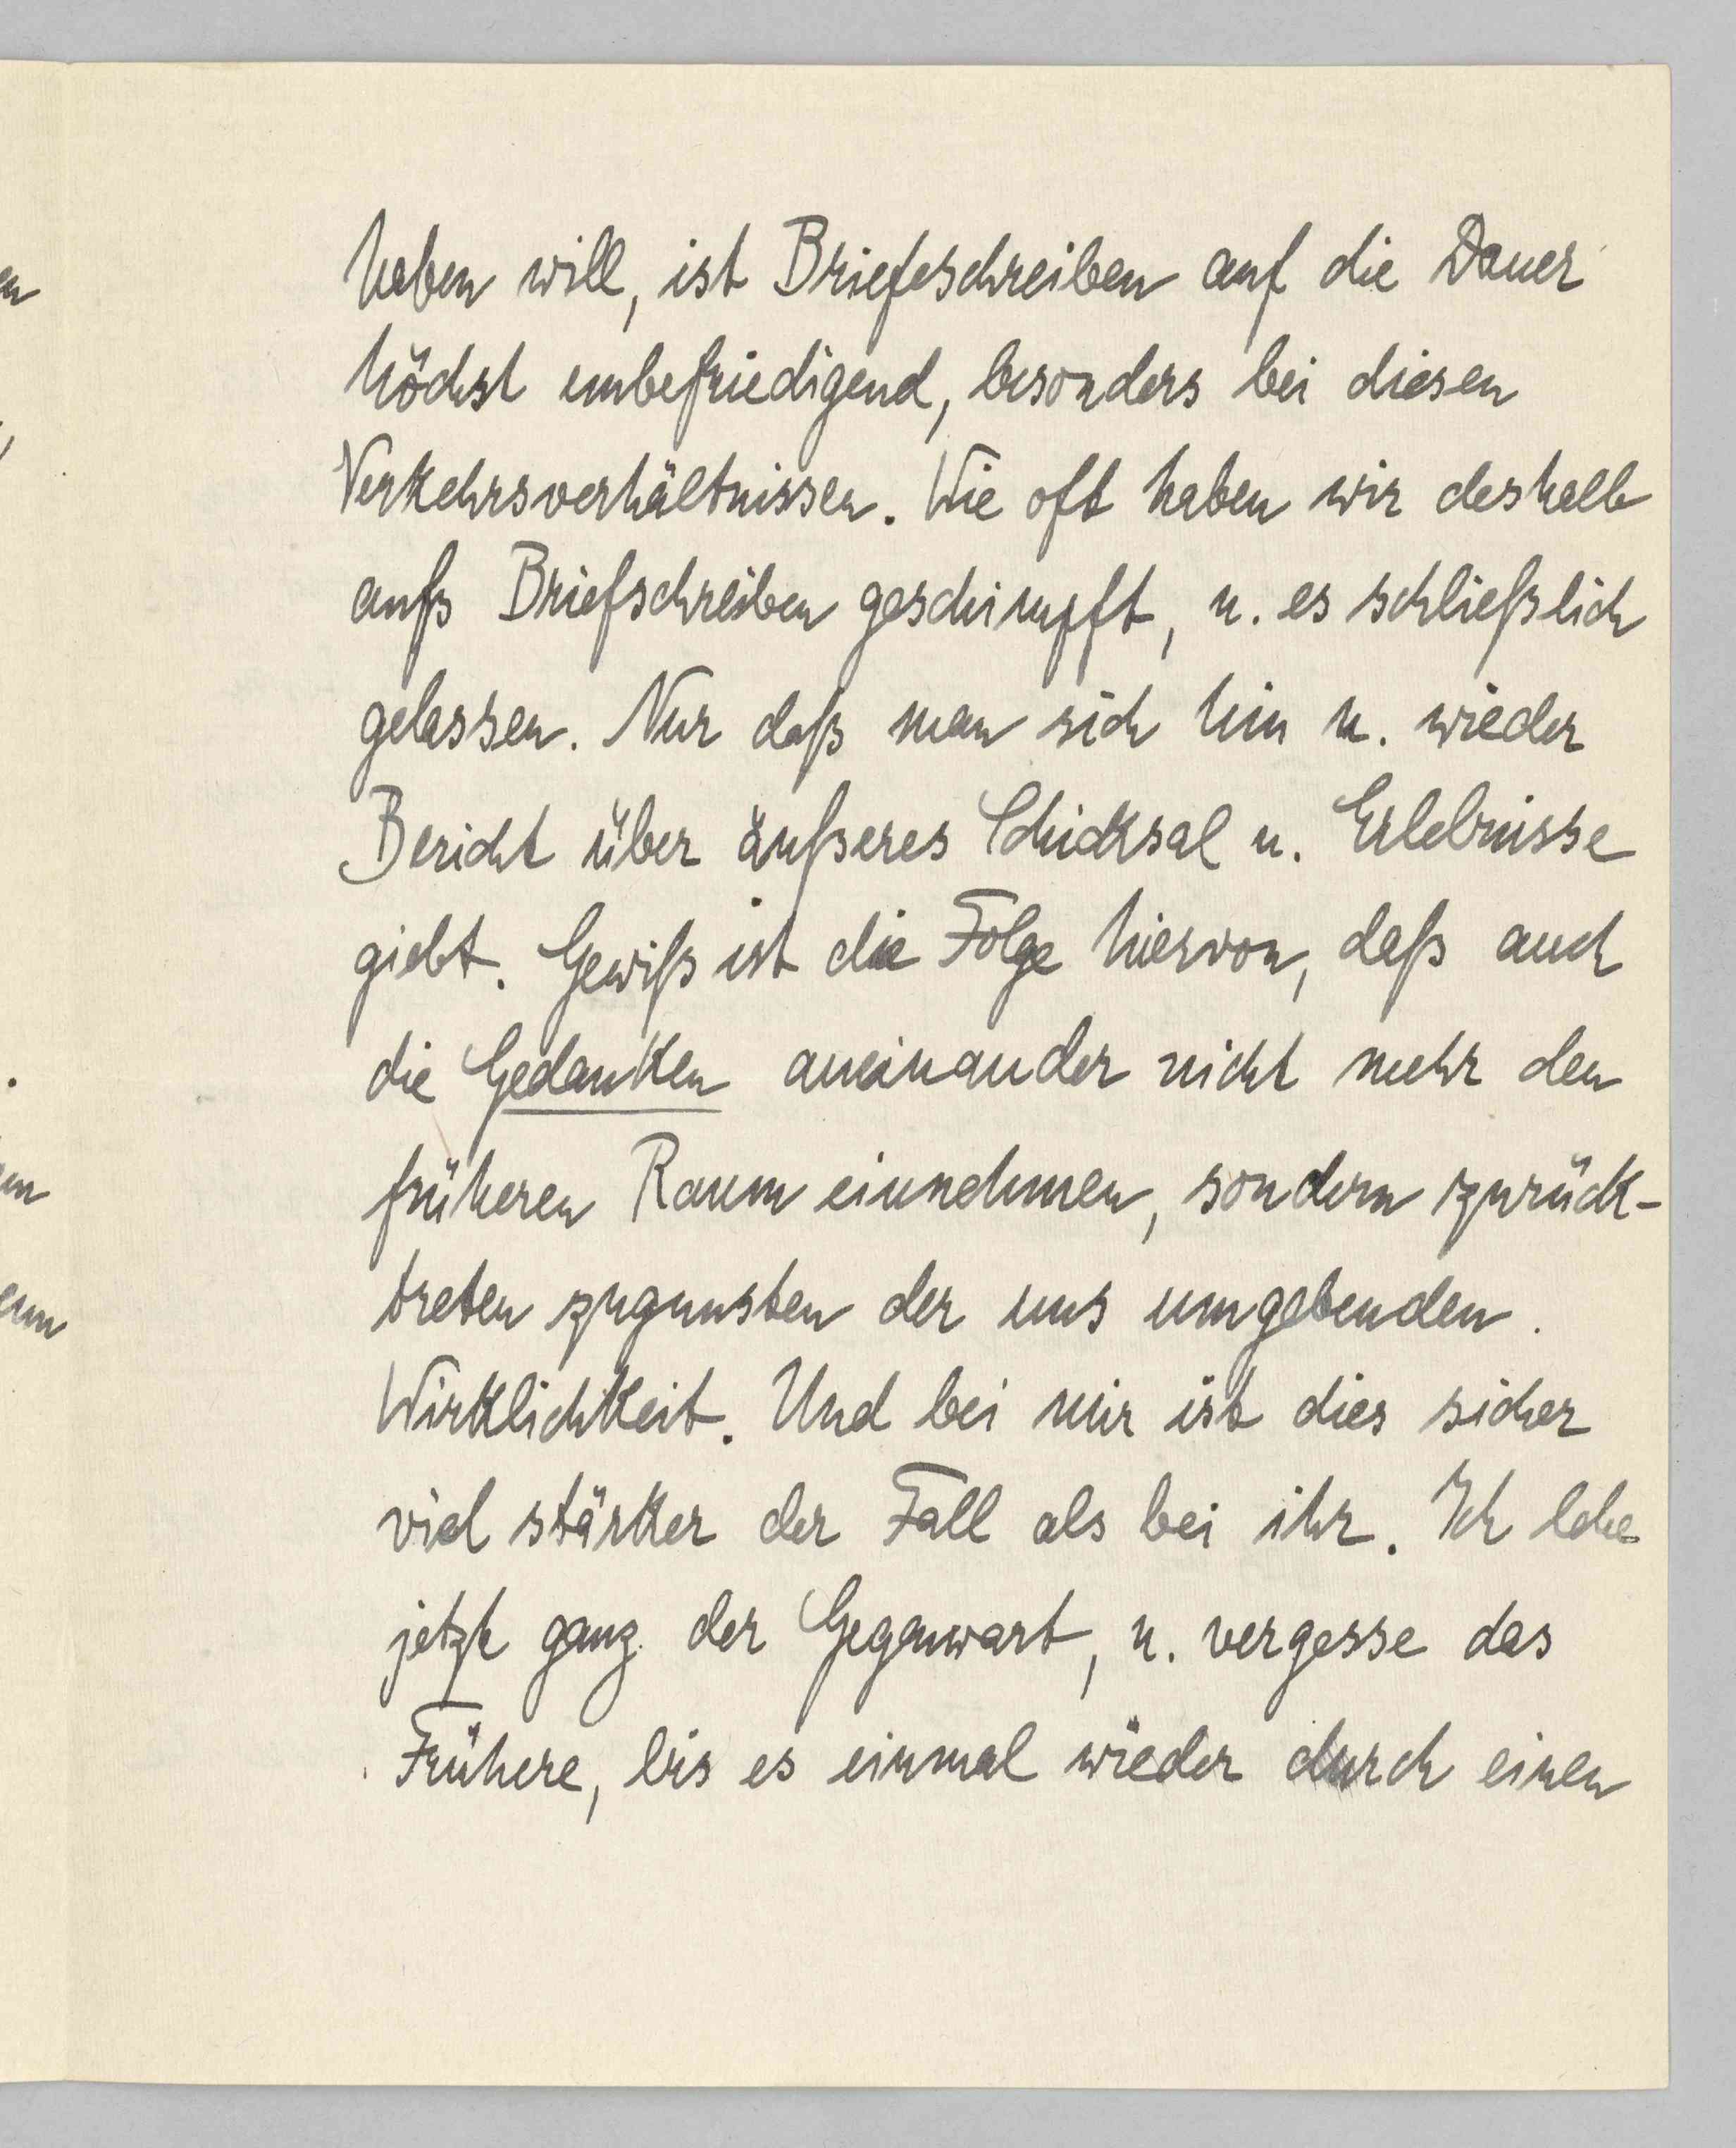 haben will, ist Briefeschreiben auf die Dauer
höchst unbefriedigend, besonders bei diesen
Verkehrsverhältnissen. Wie oft haben wir deshalb
aufs Briefschreiben geschimpft, u. es schließlich
gelassen. Nur daß man sich hin u. wieder
Bericht über äußeres Schicksal u. Erlebnisse
giebt. Gewiß ist die Folge hiervon, daß auch
die Gedanken aneinander nicht mehr den
früheren Raum einnehmen, sondern zurück-
treten zugunsten der uns umgebenden
Wirklichkeit. Und bei mir ist dies sicher
viel stärker der Fall als bei ihr. Ich lebe
jetzt ganz der Gegenwart, u. vergesse das
Frühere, bis es einmal wieder durch einen